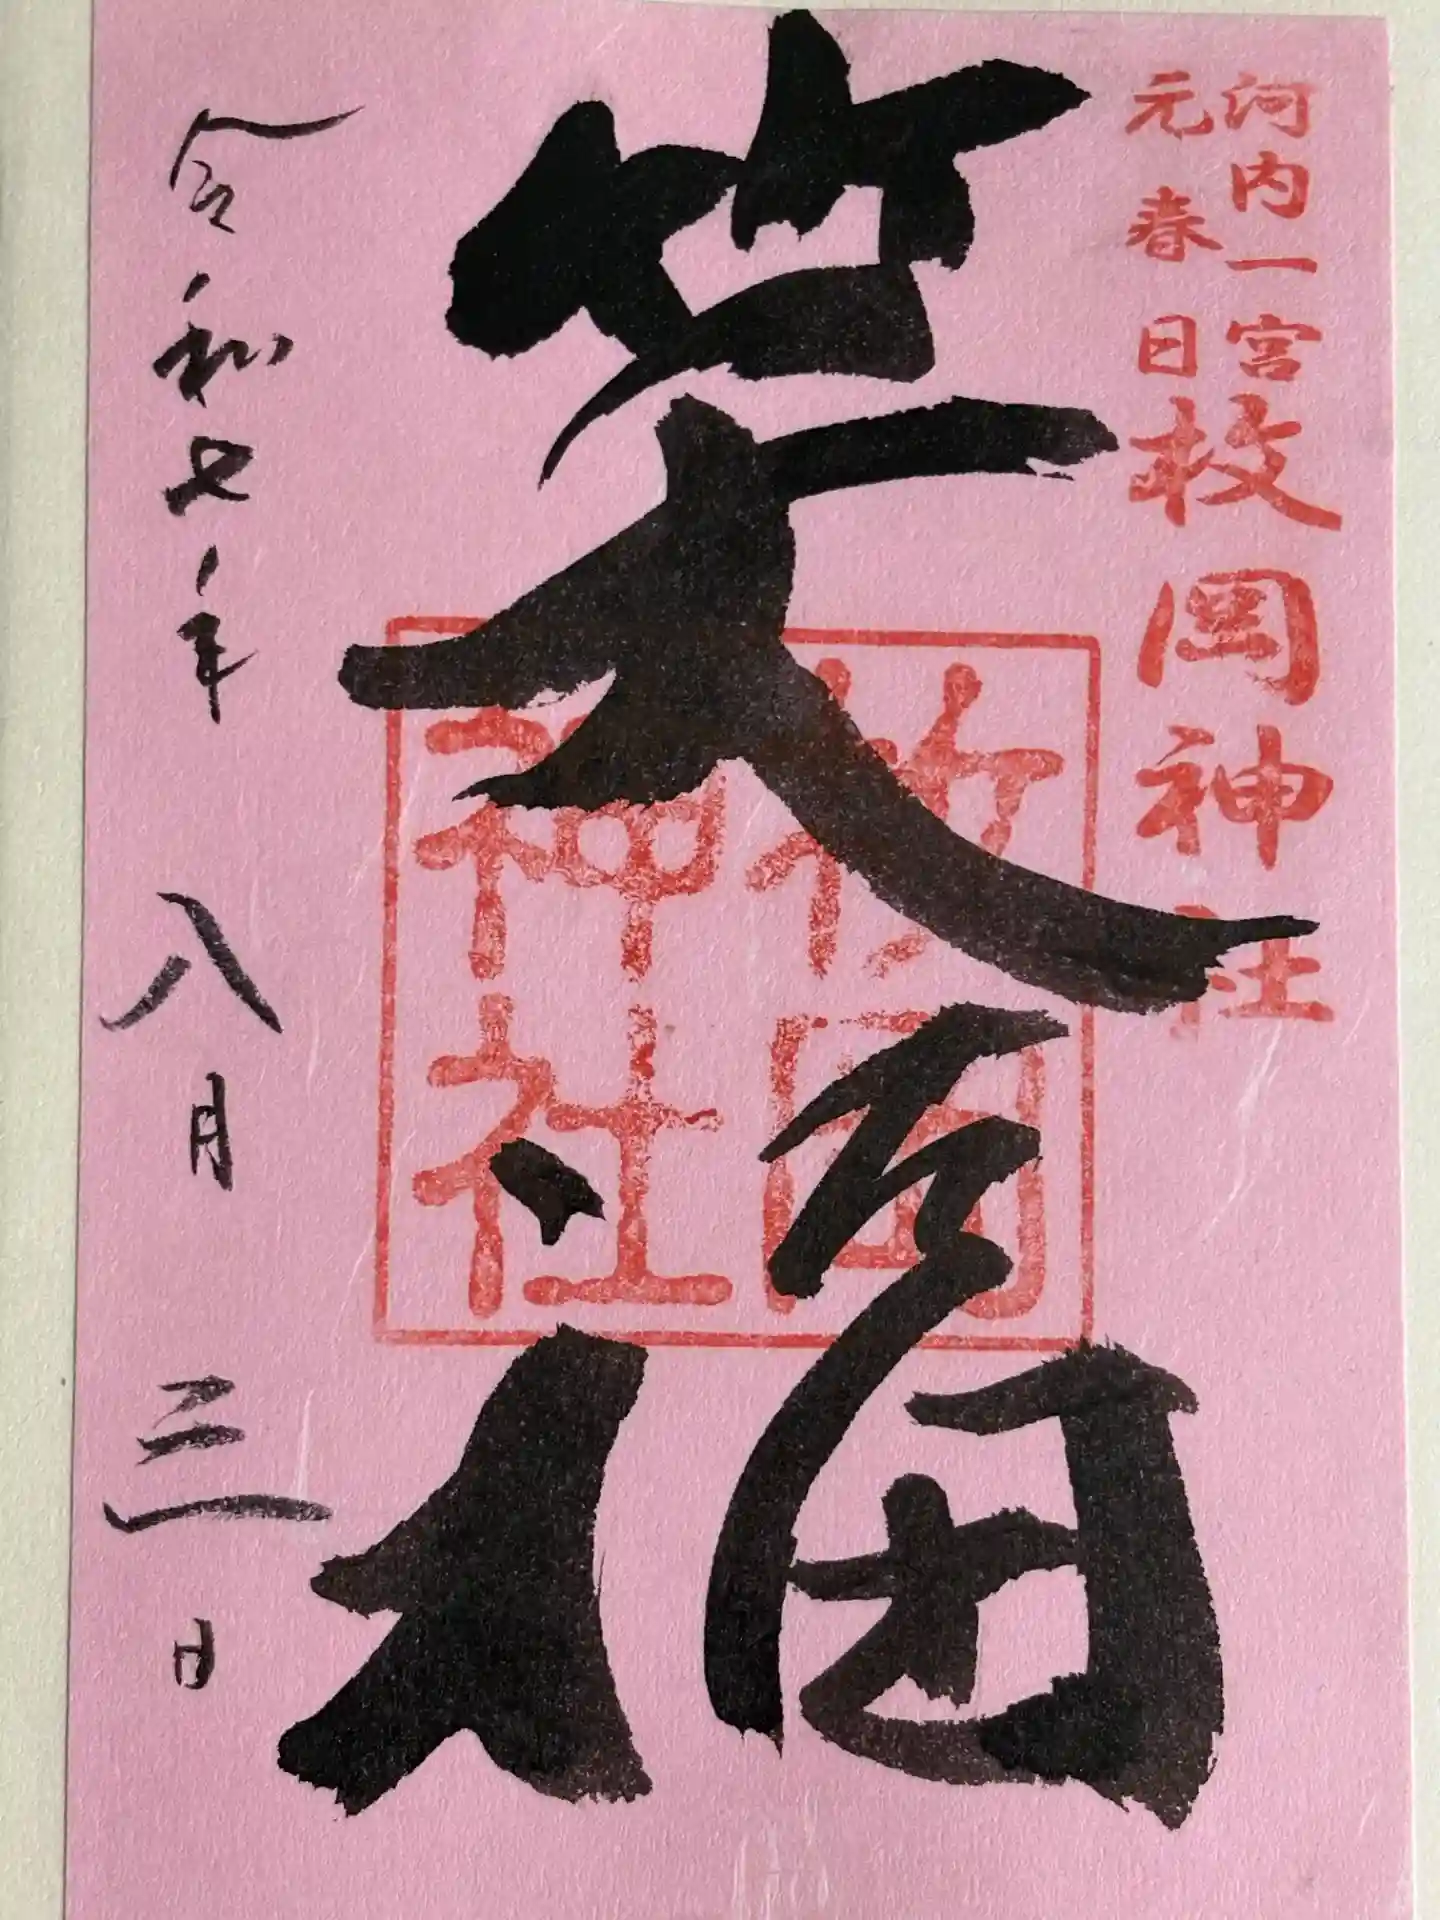 河内一宮
元春日
枚岡神社
笑福
枚岡
神社
令和七年八月三日